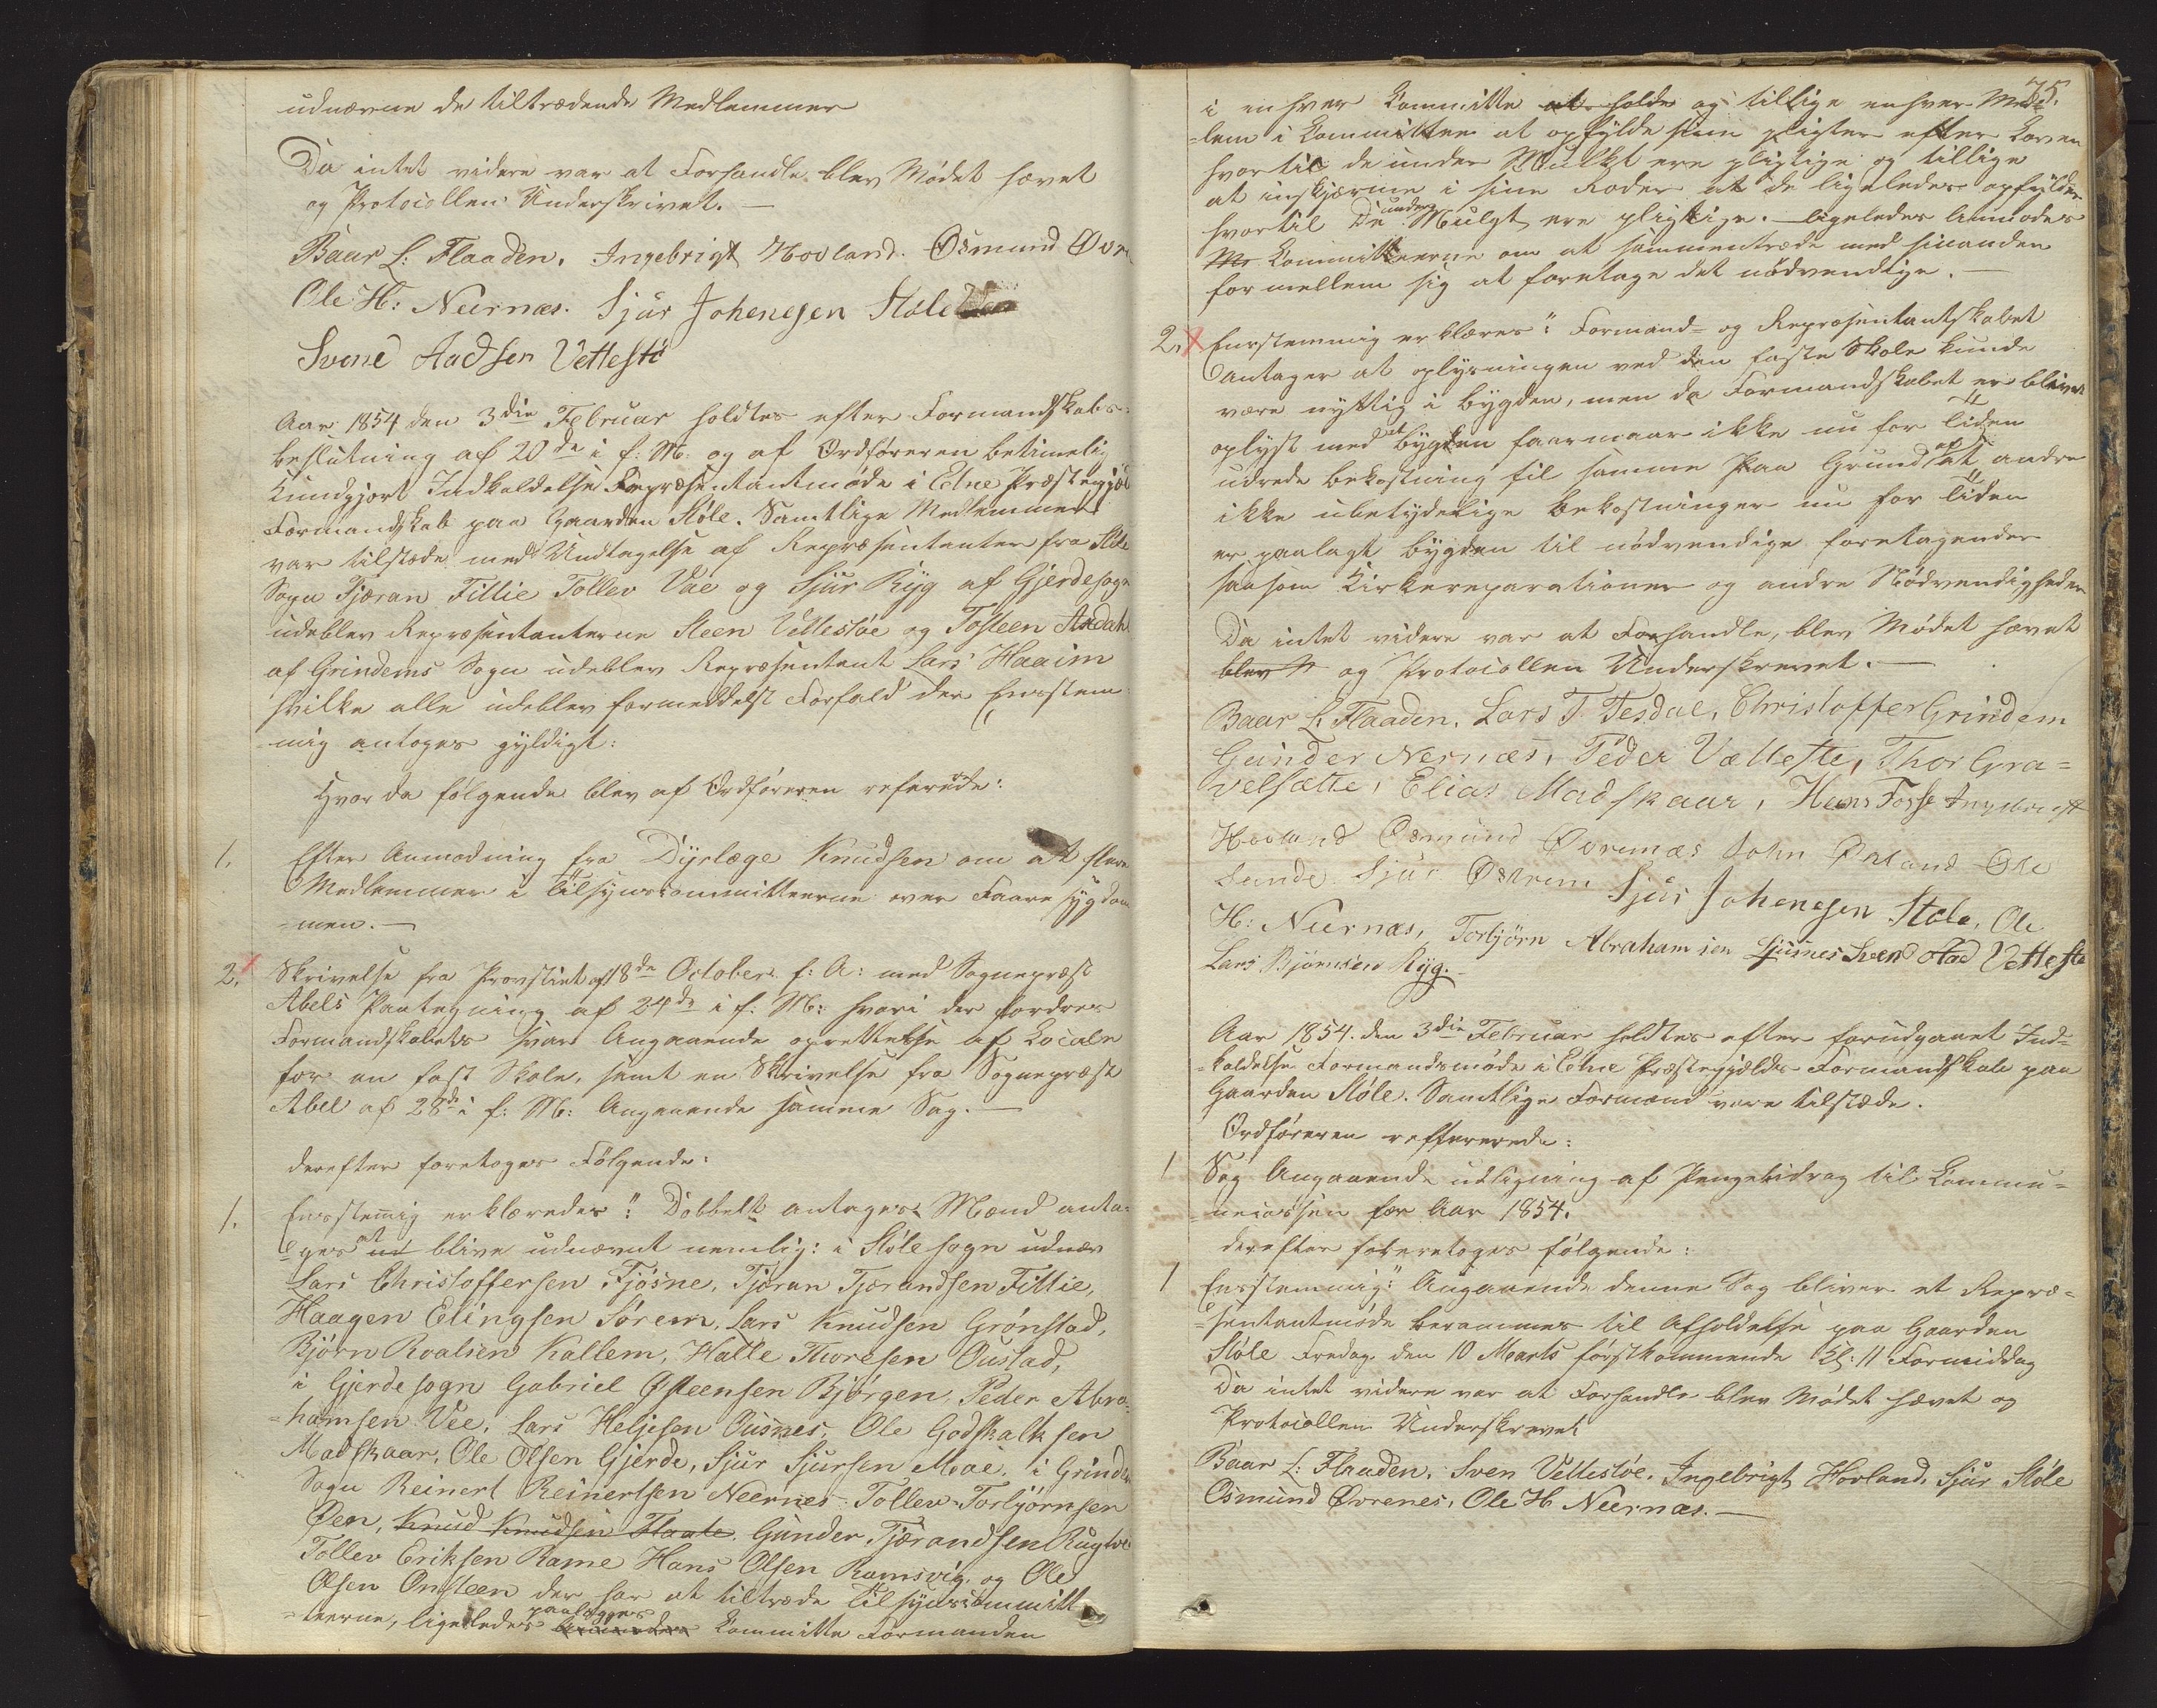 udnævne de tiltrædende Medlemmer
Da intet videre var at Forhandle blev Mødet hævet
og Protocollen Underskrivet. —
Baar L: Flaaden. Ingebrigt Hovland. Osmund Øvre
Ole H: Neernæs. Sjur Johenesen Støle
Svend Aadsen Vettestø
Aar 1854 den 3die Februar holdtes efter Formandskabs-
beslutning af 20de i f: M: og af Ordføreren betimelig
kundgjort Indkaldelse Repræsentantmøde i Etne Præstegjel
Formandskab paa Gaarden Støle. Samtlige Medlemmer
var tilstæde med Undtagelse af Repræsentanter fra Støle
Sogn Tjæran Tillie Tollev Vae og Sjur Ryg af Gjerdesogn
udeblev Repræsentanterne Steen Vettestøe og Tosteen Axdahl
af Grindems Sogn udeblev Repræsentant Lars Haaim
hvilke alle udeblev formeddelst Forfald der Eensstem
-mig antoges gyldigt:
Hvor da følgende blev af Ordføreren referede:
1. Efter Anmodning fra Dyrlæge Knudsen om at flere
Medlemmer i tilsynscommitteerne over Faaresygdom
-men. —
2. Skrivelse fra Provstiet af 18de October f: A: med Sognepræst
Abels Paategning af 24de i f: M: hvori der fordres
Formandskabets svar Angaaende oprettelse af Locale
for en fast Skole, samt en Skrivelse fra Sognepræst
Abel af 28de i f: M: Angaaende samme Sag. —
derefter foretoges Følgende:
1. Eensstemig erklæredes: "Dobbelt antages Mænd anta-
-ges at blive udnævnt nemlig: i Støle sogn udnæv
Lars Christoffersen Fjøsne, Tjæran Tjærandsen Tillie,
Haagen Elingsen Sørem, Lars Knudsen Grønstad,
Bjørn Roalsen Kallem, Halle Thoresen Oustad,
i Gjerde sogn Gabriel Østeensen Bjørgen, Peder Abra-
-hamsen Vee, Lars Heljesen Ousnes, Ole Godskalksen
Madskaar, Ole Olsen Gjerde, Sjur Sjursen Moe, i Grindem
Sogn Reinert Reinertsen Neernes Tollev Torbjørnsen
Øen, Knud Knudsen Flaate, Gunder Tjærandsen Rugtve
Tollev Eriksen Rame Hans Olsen Ramsvig og Ole
Olsen Onsteen der har at tiltræde tilsynscommitt
-eerne, ligeledes paalægges Committe Formanden
75.
i enhver Committe at holde og tillige enhver Med-
-lem i Committeen at opfylde sine pligter efter Loven
hvortil de under Mulkt ere pligtige og tillige
at indskjærme i sine Roder at de ligeledes opfylder
hvortil De under Mulgt ere pligtige. ligeledes Anmodes
Committeerne om at sammentræde med hinanden
for mellem sig at foretage det nødvendige. —
2. Eensstemmig erklæres: "Formand- og Repræsentantskabet
antager at oplysningen ved den faste Skole kunde
være nyttig i bygden, men da Formandskabet er bleven
oplyst med at bygden faarmaar ikke nu for tiden
udrede bekostning til samme paa Grund af at andre
ikke ubetydelige bekostninger nu for tiden
er paalagt bygden til nødvendige foretagender
saasom Kirkereparationer og andre Nødvendigheder
Da intet videre var at Forhandle, blev Mødet hævet
blev og Protocollen Underskrevet. —
Baar L: Flaaden. Lars T. Tesdal, Christoffer Grindem
Gunder Nernæs, Peder Vætteste, Thor Gra-
velsætte, Elias Madskaar, Hans Fosse Ingebrigt
Hovland Osmund Øvrenæs John Østand Ole
Sunde Sjur Østrem Sjur Johenesen Støle, Ole
H: Neernæs, Torbjørn Abrahamsen Ljusnes Svend Aad Vetteste
Lars Bjørnsen Ryg. —
Aar 1854. den 3die Februar holdtes efter forudgaaet Ind-
-kaldelse Formandsmøde i Etne Præstegjelds Formandskab paa
Gaarden Støle. Samtlige Formænd vare tilstæde.
Ordføreren refererede:
1 Sag Angaaende udligning af Pengebidrag til Commu-
-necassen for Aar 1854.
derefter foretoges følgende:
1 Eensstemmig: "Angaaende denne Sag bliver et Repræ-
-sentantmøde berammes til Afholdelse paa Gaarden
Støle Fredag den 10 Marts førstkommende Kl: 11 Formiddag
Da intet videre var at Forhandle blev Mødet hævet og
Protocollen Underskrevet
Baar L: Flaaden. Sven Vettestøe. Ingebrigt Hovland, Sjur Støle
Osmund Øvrenes, Ole H Neernæs. —